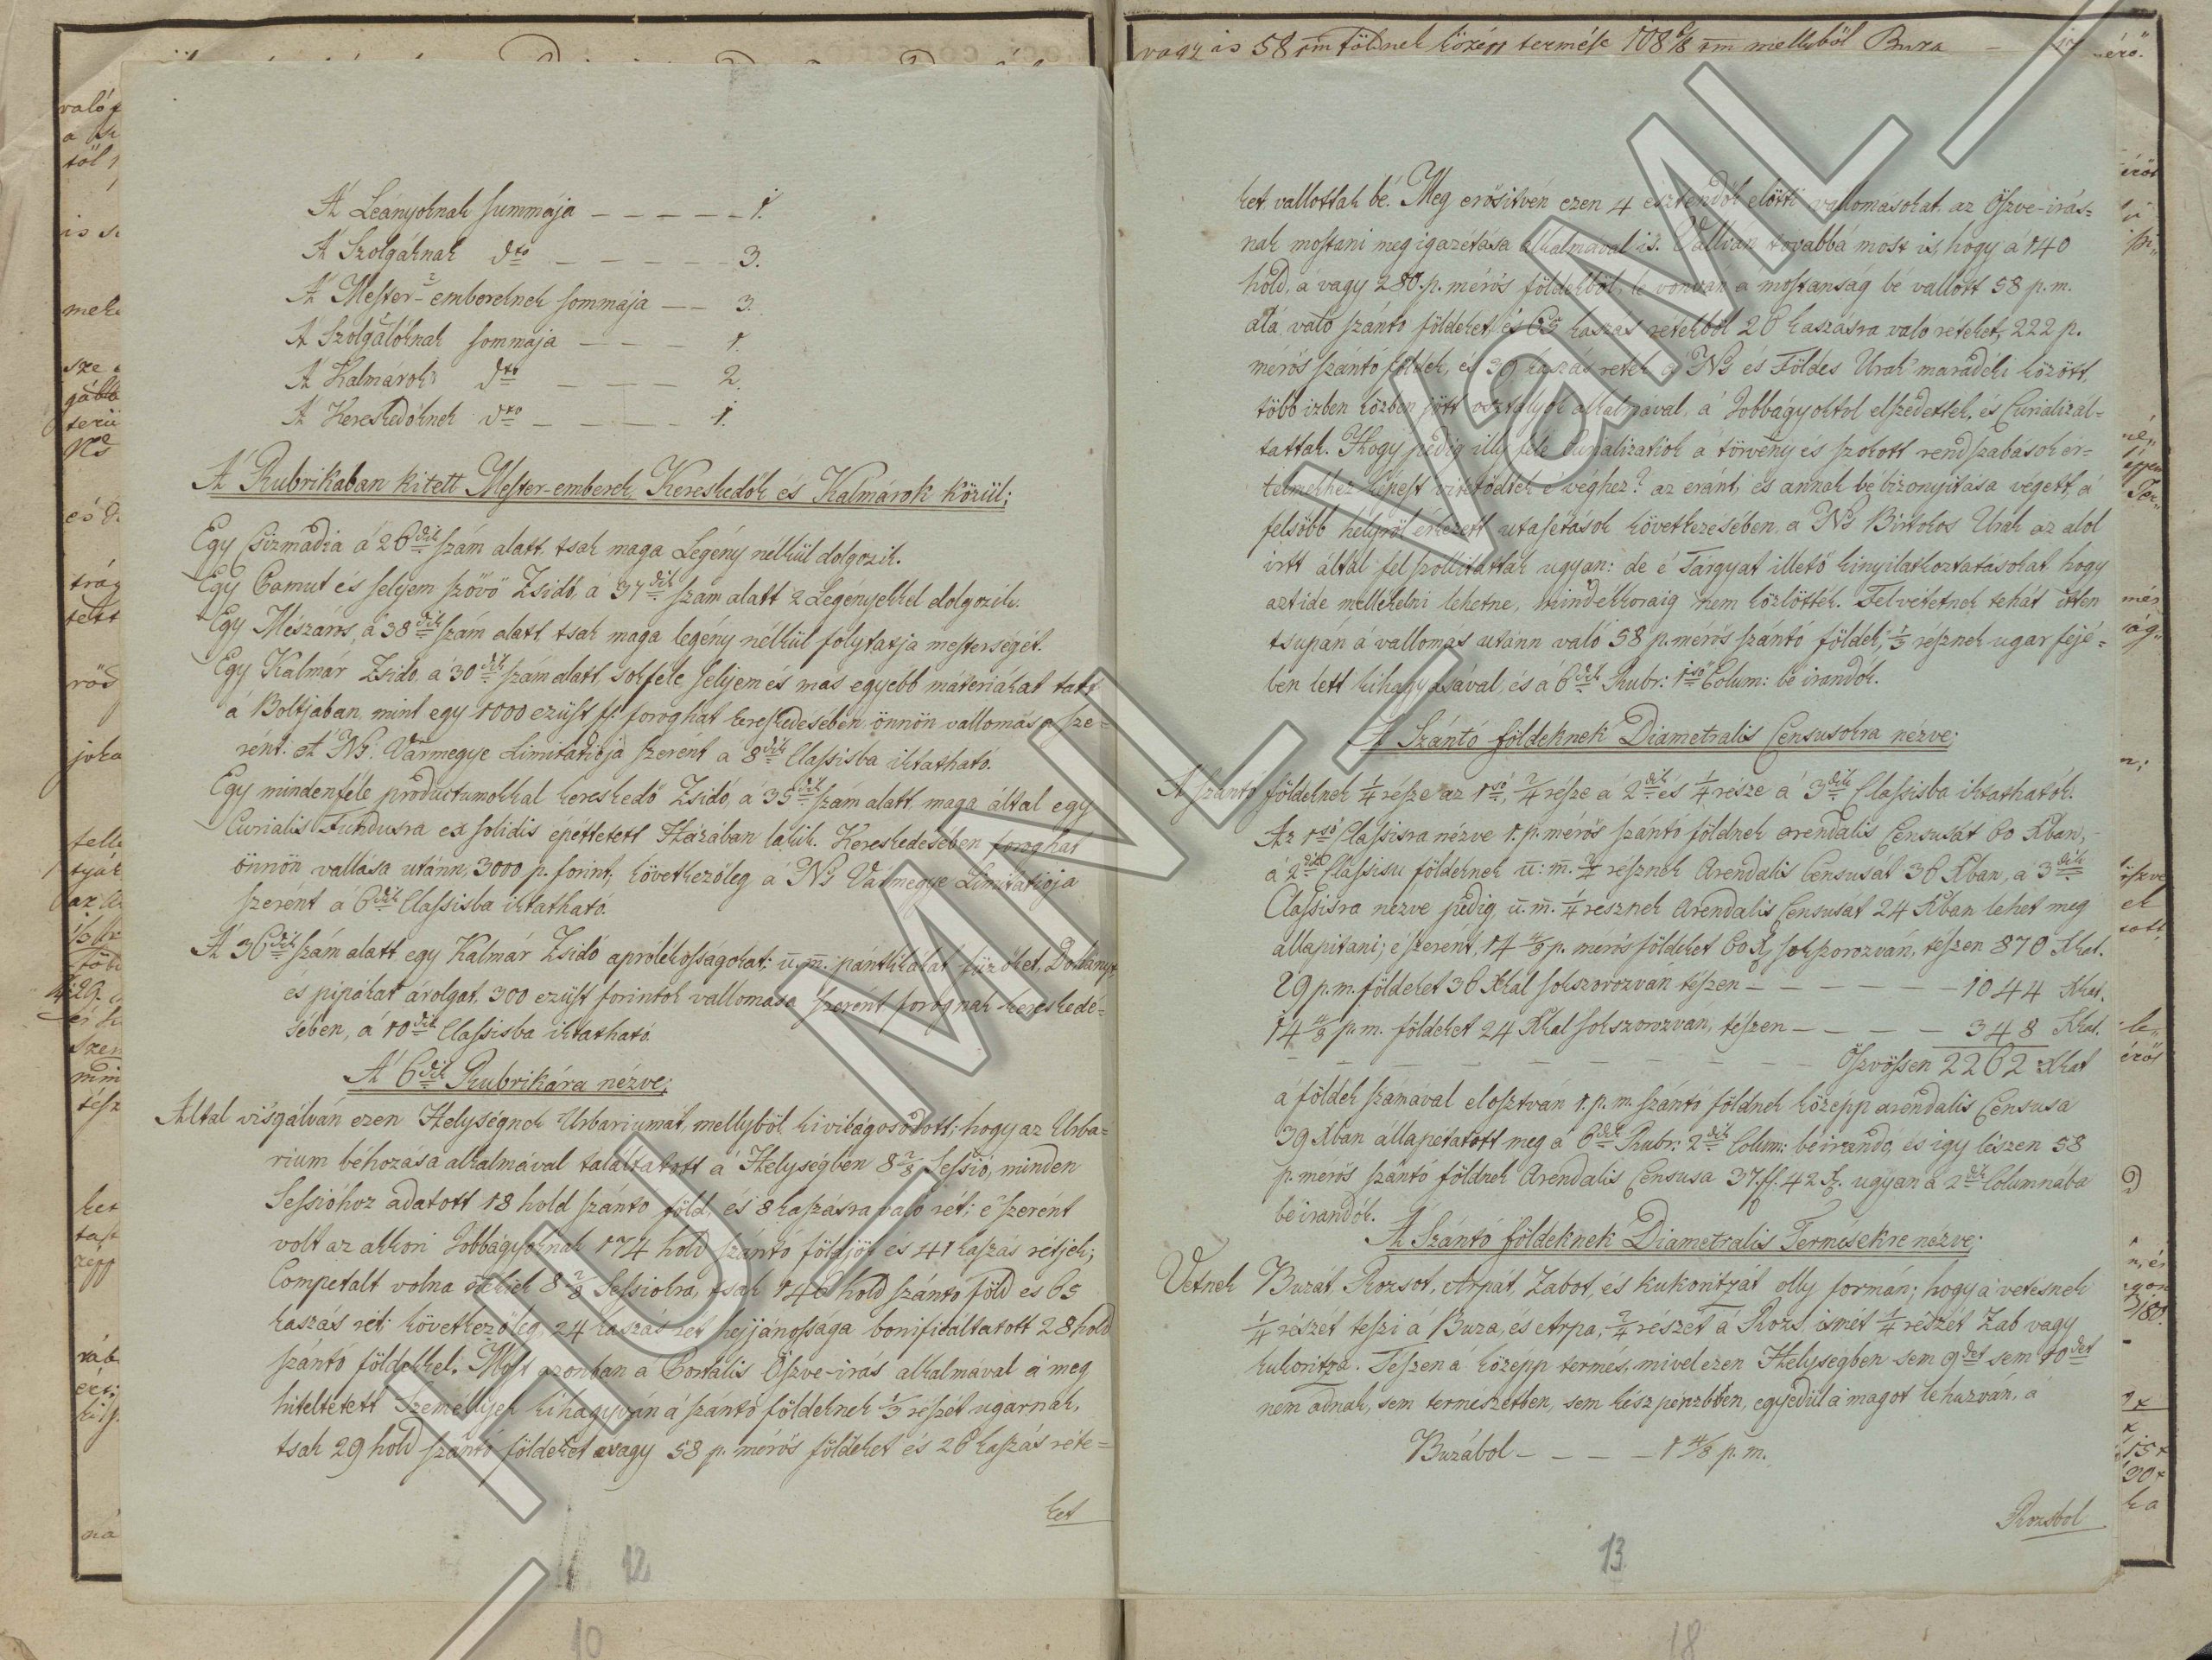 A' Leányoknak summája – – – – – 1.
A' Szolgáknak dto – – – – – 3.
A' Mester-embereknek sommája – – 3.
A' Szolgálóknak sommája – – – 1.
A' Kalmárok dto – – – – 2.
A' Kereskedőknek dto – – – – 1.
A' Rubrikaban kitett Mester-emberek, Kereskedők és Kalmárok közül;
Egy Csizmadia á 26dik szám alatt tsak maga Legény nélkül dolgozik.
Egy Pamut és selyem szövö Zsidó, á 37dik szam alatt 2 Legényekkel dolgozik.
Egy Mészáros, á 38dik szám alatt tsak maga legény nélkül folytatja mesterségét.
Egy Kalmár Zsido, á 30dik szám alatt, sokféle selyem és mas egyébb máteriákat tart
á Boltjában, mint egy 1000 ezüst f: foroghat kereskedésében önnön vallomása sze=
rént. A' Ns. Vármegye Limitatioja szerént a 8dik Classisba iktatható.
Egy mindenféle productumokkal kereskedő Zsidó, á 35dik szám alatt maga által egy
Curialis Fundusra ex solidis épéttetett Házában lakik. Kereskedesében foroghat
önnön vallása utánn, 3000 p. forint, következőleg á Ns Vármegye Limitatioja
szerént á 6dik Classisba iktatható.
A' 36dik szám alatt egy Kalmár Zsidó aprólékosságokat; u. m. pántlikákat tüzöket, Dohányt
és pipákat árolgat, 300 ezüst forintok vallomása szerént forognak kereskedé=
sében, á 10dik Classisba iktatható.
A' 6dik Rubrikára nézve;
Által visgálván ezen Helységnek Urbariumát, mellyböl kivilágosodott; hogy az Urba=
rium béhozása alkalmával találtatott á Helységben 8 2/8 Sessió, minden
Sessióhoz adatott 18 hold szánto föld, és 8 kaszásra való rét; é szerént
volt az akkori Jobbágyoknak 174 hold szántó földjök és 41 kaszás rétjek;
Competalt volna ezeknek 8 2/8 Sessiokra, tsak 146 hold szántó föld és 65
kaszás rét; következőleg 24 kaszás rét hejjánossága bonificáltatott 28 hold
szántó földekkel. Most azonban a Portális Öszve-irás alkalmával á meg
hiteltetett Személlyek kihagyván á szántó földeknek 1/3 részét ugarnak,
tsak 29 hold szántó földeket avagy 58 p. mérös földeket és 26 kaszás réte=
ket
12
10
vagy is 58 földnek közép termése 108 6/8 mellyböl Buza
ket vallottak bé. Meg erősitvén ezen 4 esztendök elötti vallomásokat az Öszve-irás=
nak mostani megigazétása alkalmával is. Vallván továbbá most is, hogy á 140
hold, á vagy 280. p. mérös földekböl, le vonván á mostanság bé vallott 58 p. m.
alá való szánto földeket, és 65 kaszás rétekböl 26 kaszásra való réteket, 222 p.
mérös szántó földek, és 39 kaszás rétek á Ns és Földes Urak maradéki között
több izben közben jött osztályok alkalmával, á Jobbágyoktol elszedettek, és Curializál=
tattak. Hogy pedig illy féle Curializatiok a törvény és szokott rendszabások ér=
telmekhez képest vitetődtek é véghez? az eránt, és annak bébizonyitása végett, á
felsöbb helyröl érkezett utasetások következésében, a Ns Birtokos Urak az alol
irtt által fel szollittattak ugyan: de é Tárgyat illető kinyilatkoztatásokat, hogy
azt ide mellékelni lehetne, mindekkoraig nem közlötték. Felvétetnek tehát itten
tsupán á vallomás utánn való 58 p. mérös szántó földek, 1/3 résznek ugar fejé=
ben lett kihagyásával, és á 6dik Rubr: 1sö Colum: bé irandók.
A Szántó földeknek Diametralis Censusokra nézve;
A szántó földeknek 1/4 része az 1sö, 2/4 része á 2dik és 1/4 része á 3dik Classisba iktathatók.
Az 1sö Classisra nézve 1. p. mérös szántó földnek arendalis Censusát 60 Xban,
á 2dik Classisu földeknek u: m. 2/4 résznek Arendalis Censusát 36 Xban, á 3dik
Classisra nézve pedig, u. m. 1/4 resznek Arendalis Censusat 24 Xban lehet meg
állapitani; é szerént, 14 4/8 p. mérös földeket 60 X sokszorozván, tészen 870 Xkat.
29 p. m. földeket 36 Xkal sokszorozván tészen – – – – – – 1044 Xkat.
14 4/8 p. m. földeket 24 Xkal sokszorozván, tészen – – – – 348 Xkat.
Öszvössen 2262 Xkat
á földek számával elosztván 1. p. m. szántó földnek középp arendalis Censusa
39 Xban állapétatott meg á 6dik Rubr: 2dik Colum: béirandó, és igy lészen 58
p. mérös szántó földnek Arendalis Censusa 37. f. 42 X. ugyan a 2dik Columnába
béirandók.
A Szántó földeknek Diametralis Termésekre nézve;
Vetnek Buzát, Rozsot, Árpát, Zabot, és kukoritzát olly formán; hogy á vetésnek
1/4 részét teszi á Buza, és Arpa, 2/4 részét á Rozs, ismét 1/4 részét Zab vagy
kukoritza. Tészen á középp termés, mivel ezen Helységben sem 9det sem 10det
nem adnak, sem termeszetben, sem kész penzbben, egyedül á magot le huzván, á
Buzábol – – – – 1 4/8 p. m.
Rozsbol
13
18
HU MNL VaML